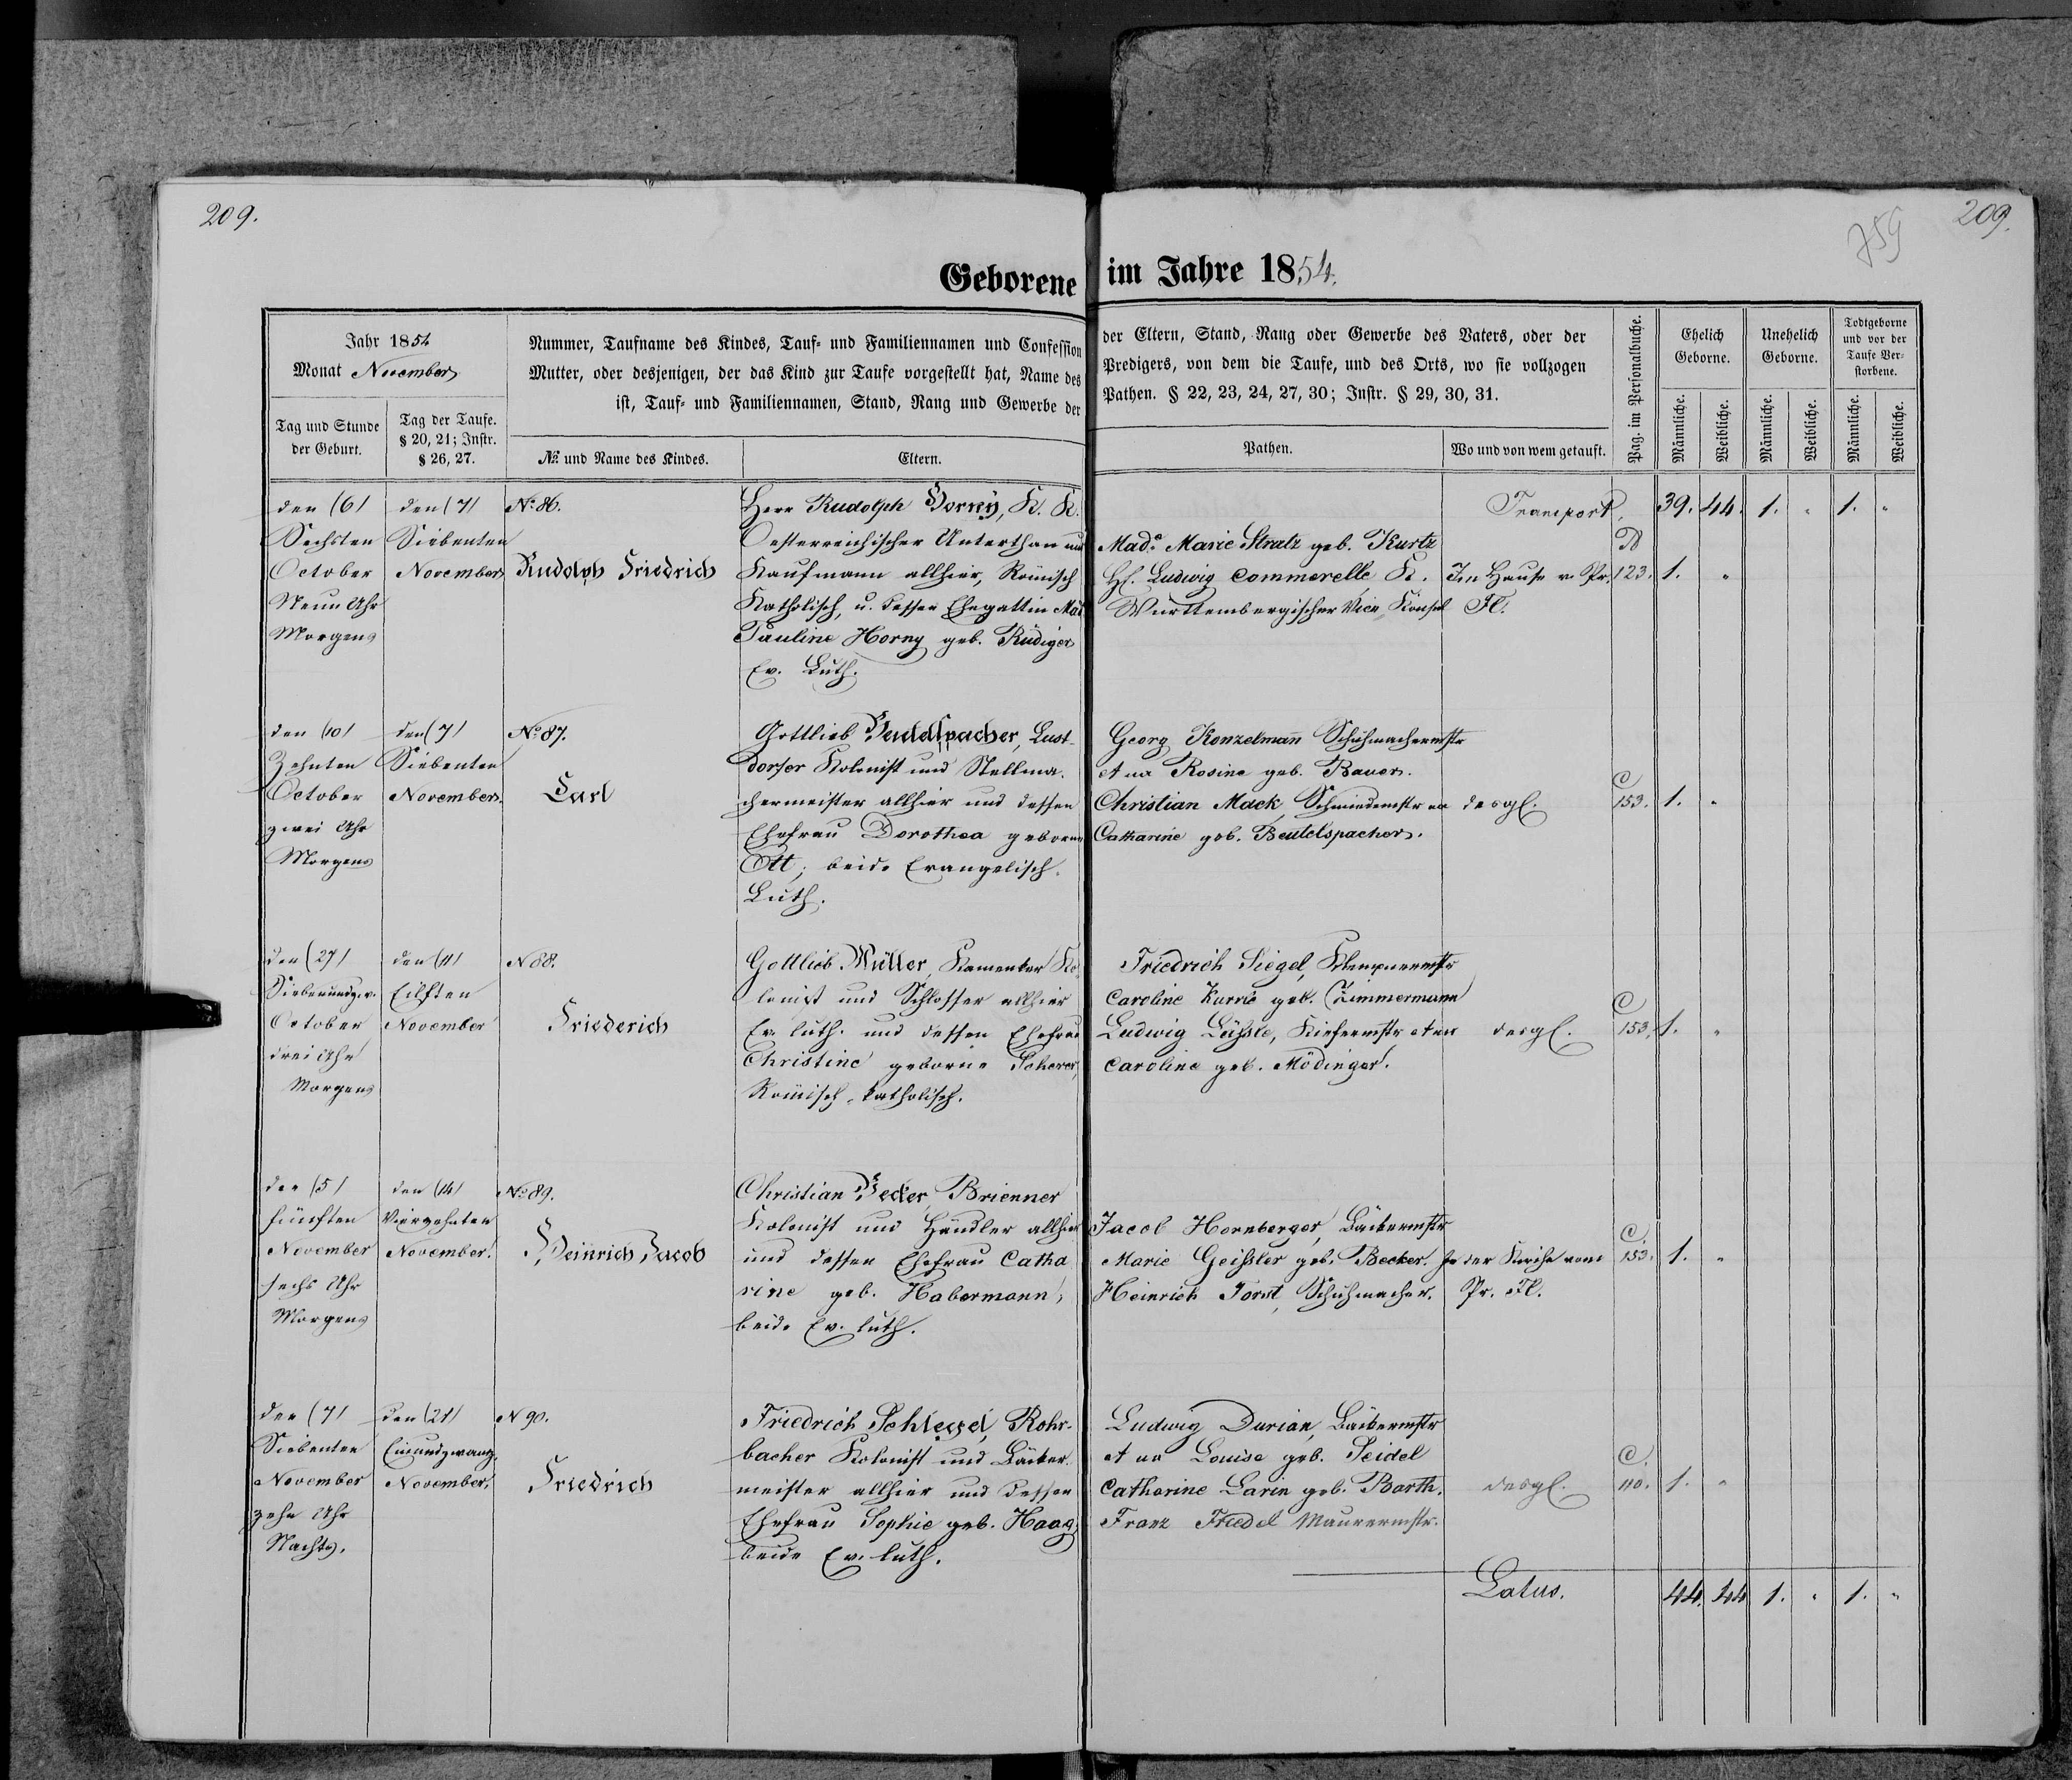 209.
209.
759
Geborene im Jahre 1854.
Jahr 1854
Monat November
Tag und Stunde
der Geburt.
Tag der Taufe.
§ 20, 21; Instr.
§ 26, 27.
Nummer, Taufname des Kindes, Tauf- und Familiennamen und Confession der Eltern, Stand, Rang oder Gewerbe des Vaters, oder der
Mutter, oder desjenigen, der das Kind zur Taufe vorgestellt hat, Name des Predigers, von dem die Taufe, und des Orts, wo sie vollzogen
ist, Tauf- und Familiennamen, Stand, Rang und Gewerbe der Pathen. § 22, 23, 24, 27, 30; Instr. § 29, 30, 31.
№ und Name des Kindes.
Eltern.
Pathen.
Wo und von wem getauft.
Pag. im Personalbuche.
Ehelich
Geborne.
Unehelich
Geborne.
Todtgeborne
und vor der
Taufe Ver-
storbene.
Männliche.
Weibliche.
Männliche.
Weibliche.
Männliche.
Weibliche.
Transport, 39. 44. 1. " 1. "
den (6)
Sechsten
October
Neun Uhr
Morgens
den (7)
Siebenten
November
No. 86.
Rudolph Friedrich
Herr Rudolph Horny, K. K.
Oesterreichischer Unterthan und
Kaufmann allhier, Römisch
Katholisch, u. dessen Ehegattin Mad
Pauline Horny geb. Rüdiger
Ev. Luth.
Made. Marie Stratz geb. Kurtz
H. Ludwig Commerelle K.
Württembergischer Vice Konsul
Im Hause v. Pr.
Fl.
123. 1. "
den (10)
Zehnten
October
zwei Uhr
Morgens
den (7)
Siebenten
November.
No. 87.
Carl
Gottlieb Beutelspacher, Lust-
dorfer Kolonist und Stellma-
chermeister allhier und dessen
Ehefrau Dorothea geborne
Ott, beide Evangelisch-
Luth.
Georg Konzelmañ Schuhmachermstr
et ux Rosine geb. Bauer.
Christian Mack, Schmiedemstr ux
Catharine geb. Beutelspacher.
desgl.
C
153. 1. "
den (27)
Siebenundzw.
October
drei Uhr
Morgens
den (11)
Eilften
November
N 88.
Friederich
Gottlieb Müller, Kamenker Ko-
lonist und Schlosser allhier
Ev. luth. und dessen Ehefrau
Christine geborne Scherer,
Römisch-katholisch.
Friedrich Siegel, Klempnermstr
Caroline Kurrle geb. Zimmermann
Ludwig Läißle, Kiefermstr et ux
Caroline geb. Mödinger.
desgl.
C
153. 1. "
den (5)
fünften
November
sechs Uhr
Morgens
den (14)
Vierzehnten
November.
No. 89.
Heinrich Jacob
Christian Becker, Brienner
Kolonist und Händler allhier
und dessen Ehefrau Catha
rine geb. Habermann,
beide Ev. luth.
Jacob Hornberger, Bäckermstr
Marie Geißler geb. Becker.
Heinrich Forst, Schuhmacher.
In der Kirche vom
Pr. Fl.
C
153. 1. "
den (7)
Siebenten
November
zehn Uhr
Nachts.
den (21)
Einundzwanz.
November.
N 90.
Friedrich
Friedrich Schlegel, Rohr-
bacher Kolonist und Bäcker-
meister allhier und dessen
Ehefrau Sophie geb. Haag,
beide Ev. luth.
Ludwig Durian, Bäckermstr
et ux Louise geb. Seidel
Catharine Larin geb. Barth.
Franz Friedel Maurermstr.
desgl.
C
110. 1. "
Latus. 44. 44 1. " 1. "